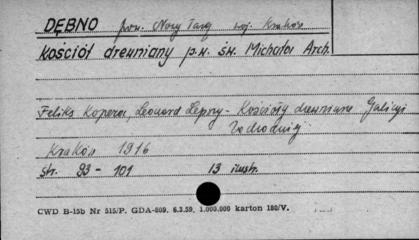 DĘBNO pow. Nowy Targ woj. Kraków
Kościół drewniany p.w. św. Michała Arch.
Feliks Kopera, Leonard Lepszy - Kościoły drewniane Galicyi
Zachodniej
Kraków 1916
str. 93 - 101 13 ilustr.
CWD B-15b Nr 515/P. GDA-809. 6.3.59. 1.000.000 karton 180/V.